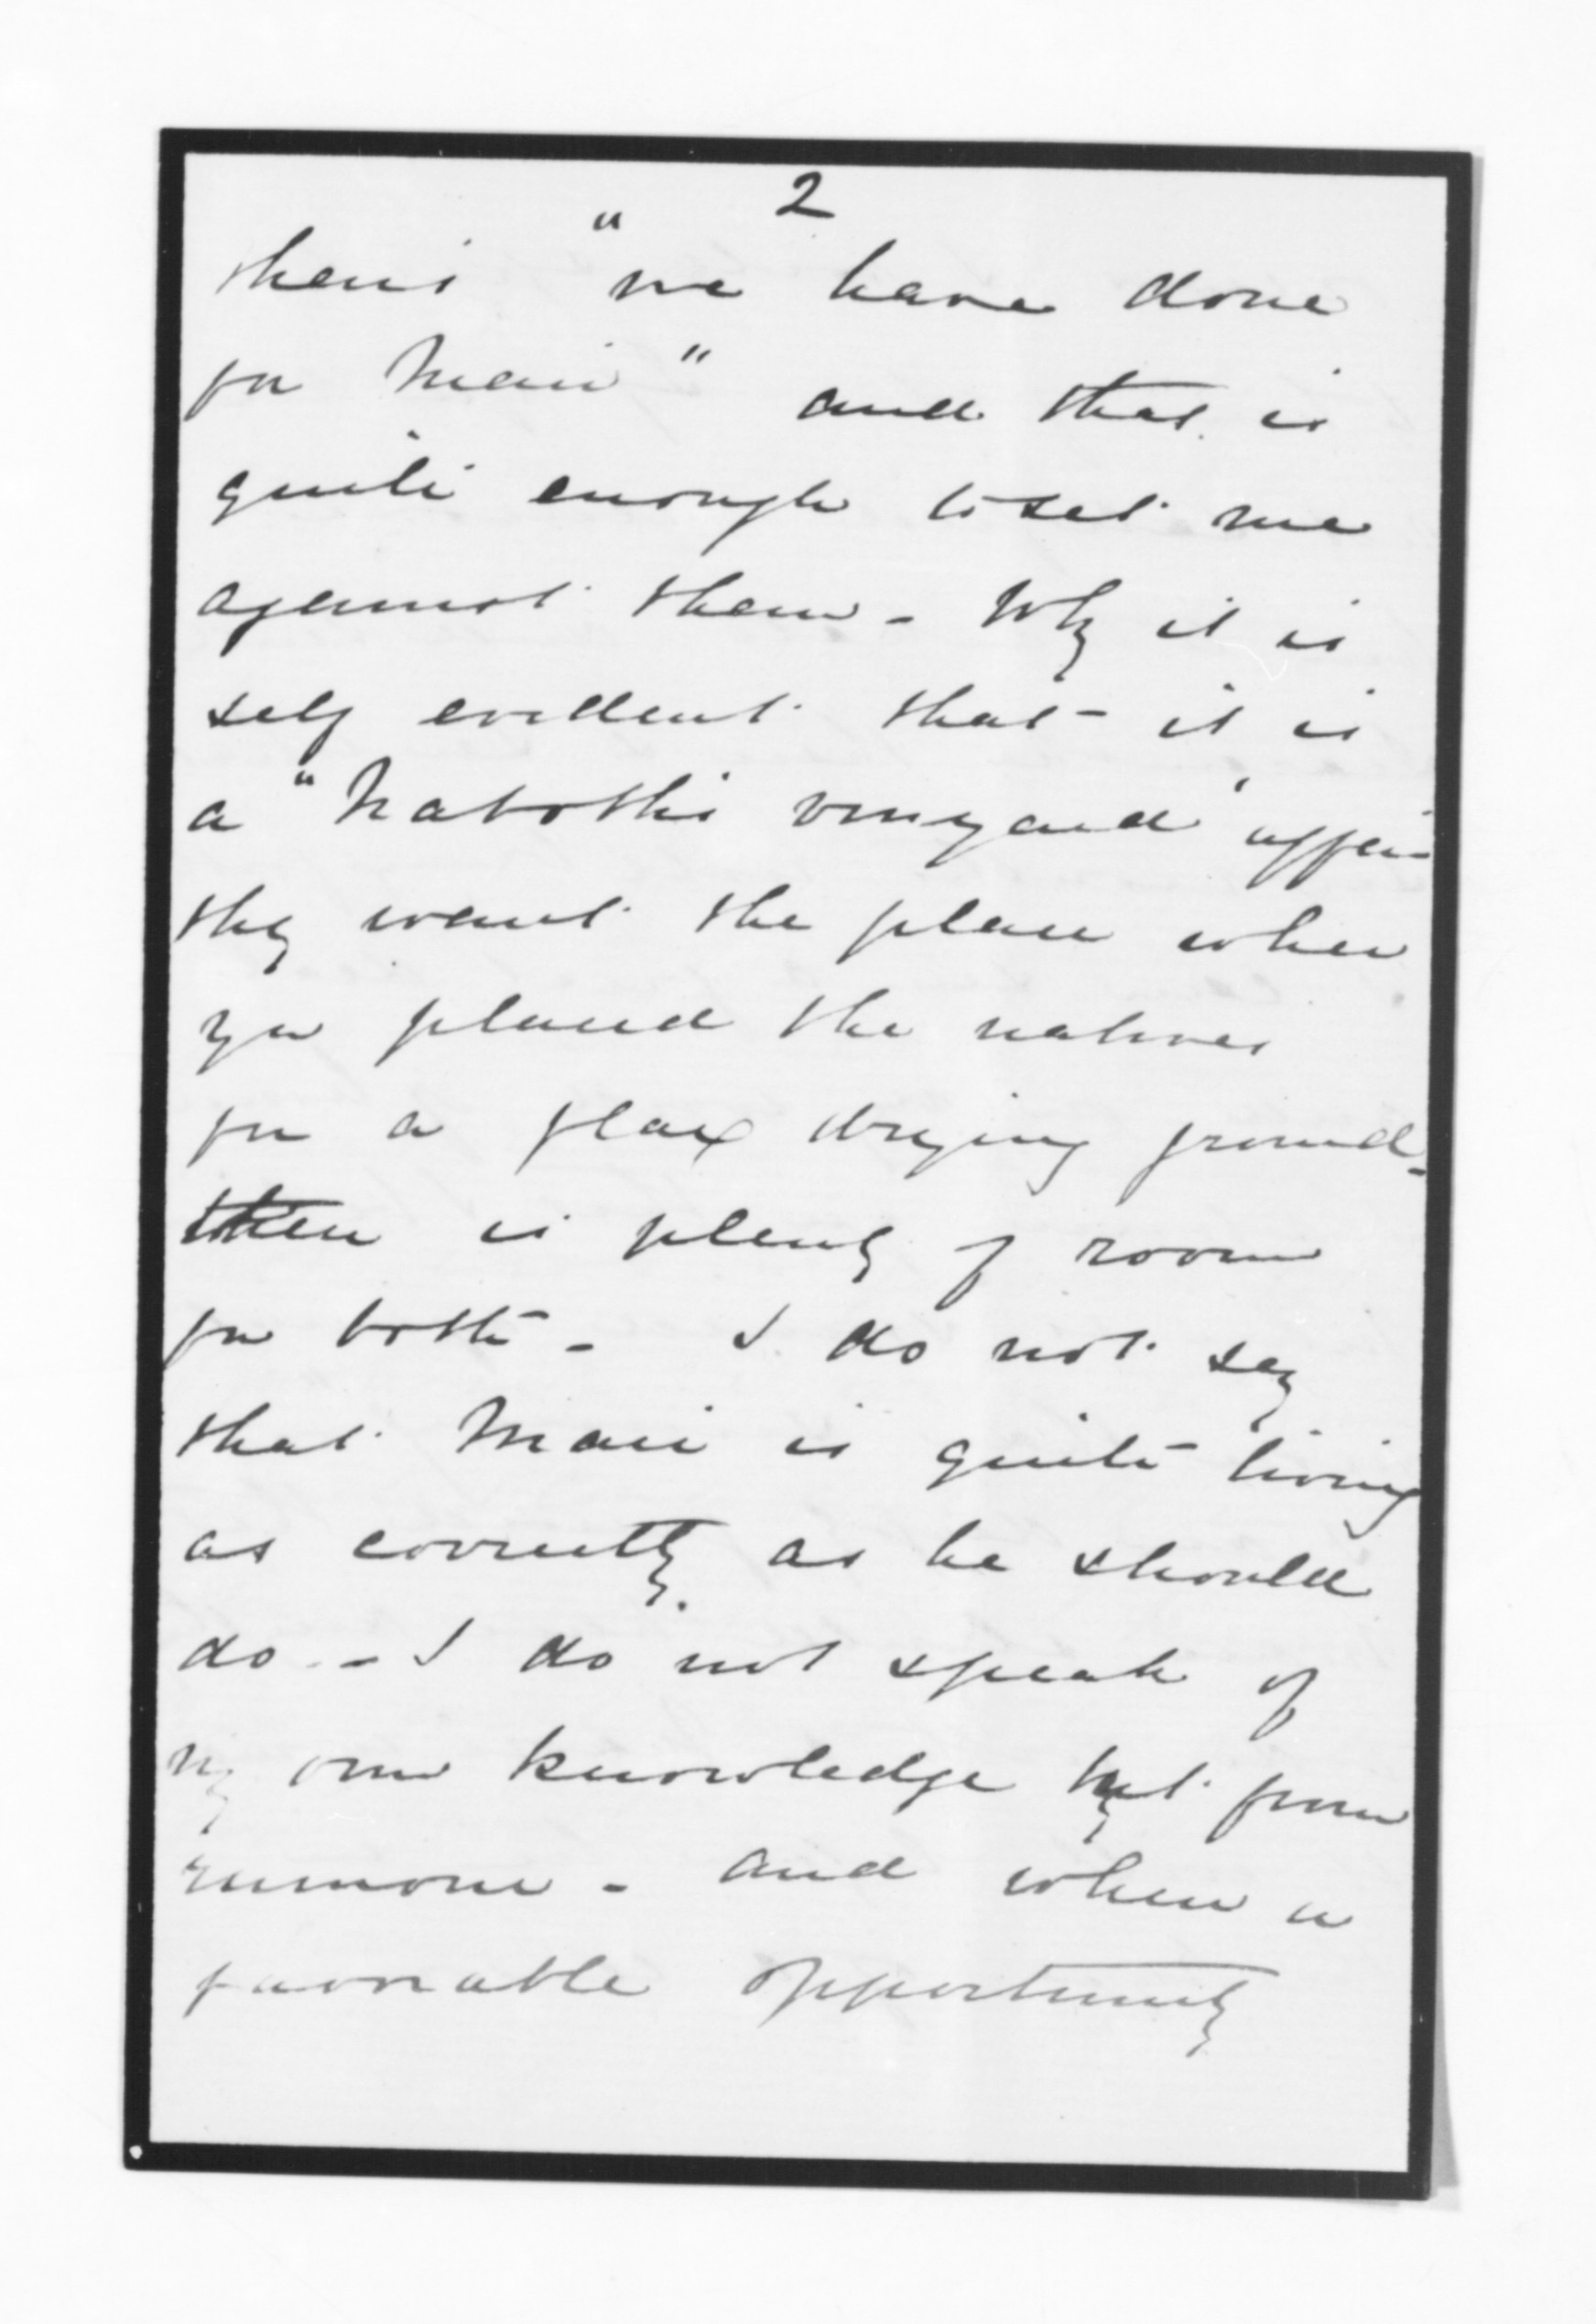 2
theirs "we have done
for Mair" and that is
quite enough to set me
against them - Why it is
self evident that it is
a "Naboths vineyard" affair
they want the place where
you placed the natives
for a flax drying ground -
there is plenty of room
for both - I do not say
that Mair is quite living
as correctly as he should
do - I do not speak of
my own knowledge but from
rumour - and when a
favorable opportunity